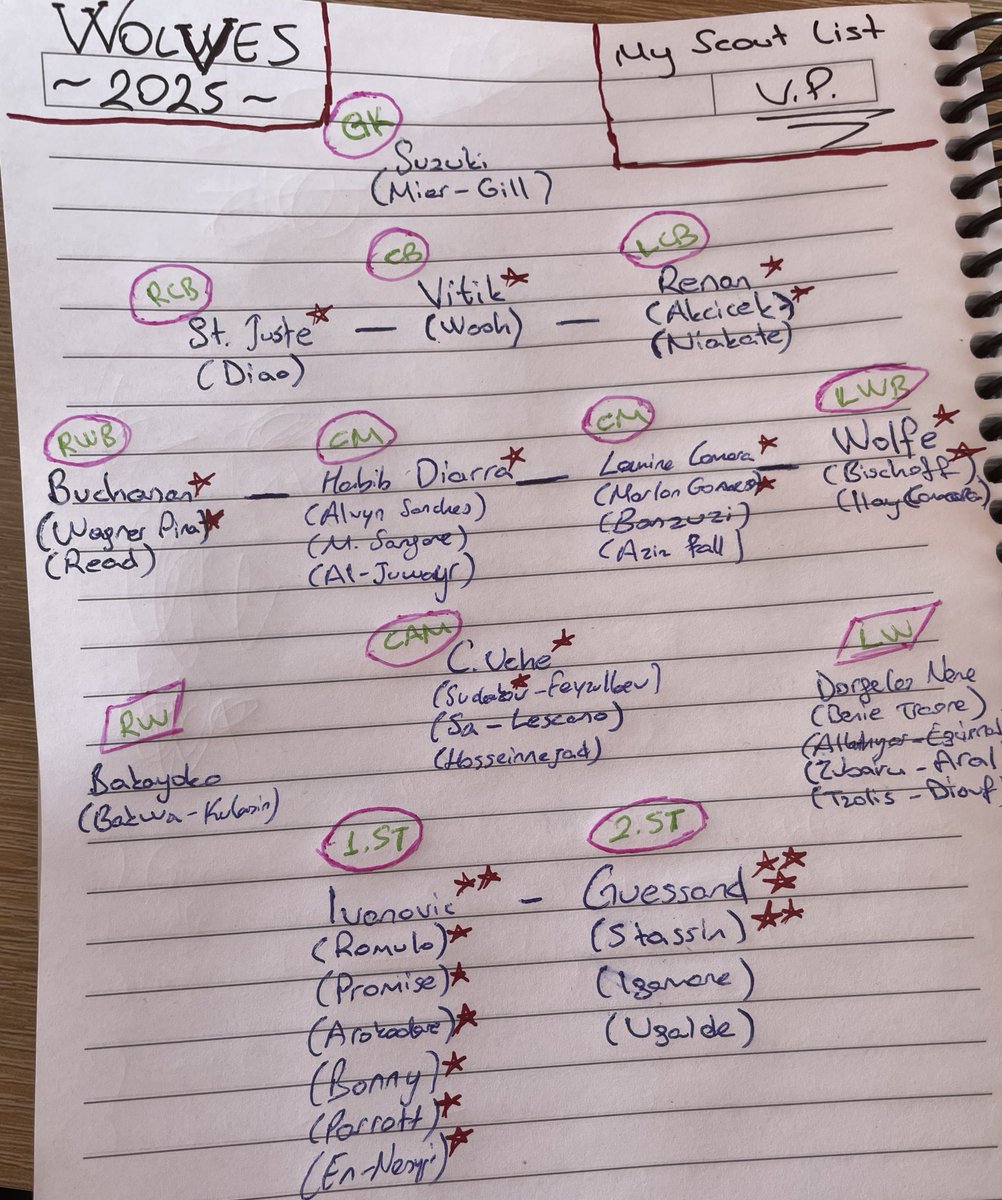 WOLVES
~ 2025 ~
My Scout List
V.P.
GK
Suzuki
(Mier - Gill)
RCB
St. Juste
(Diao)
CB
Vitik
(Wooh)
LCB
Renan
(Akcicek)
(Niakate)
RWB
Buchanan
(Wagner Pina)
(Read)
CM
Habib Diarra
(Alvyn Sanches)
(M. Sangare)
(Al-Juwayr)
CM
Lamine Camara
(Marlon Gomes)
(Banzuzi)
(Aziz Fall)
LWB
Wolfe
(Bischoff)
CAM
C. Uche
(Sudakov - Feyzullaev)
(Sa - Lescano)
(Hosseinnejad)
RW
Bakayoko
(Bakwa -
LW
Dorgeles Nene
(Benie Traore)
(Zubaru - Aral
(Tzolis - Diouf
1.ST
Ivanovic
(Romulo)
(Promise)
(Arokodare)
(Bonny)
(Parrott)
(En-Nesyri)
2.ST
Guessand
(Stassin)
(Igamane)
(Ugalde)